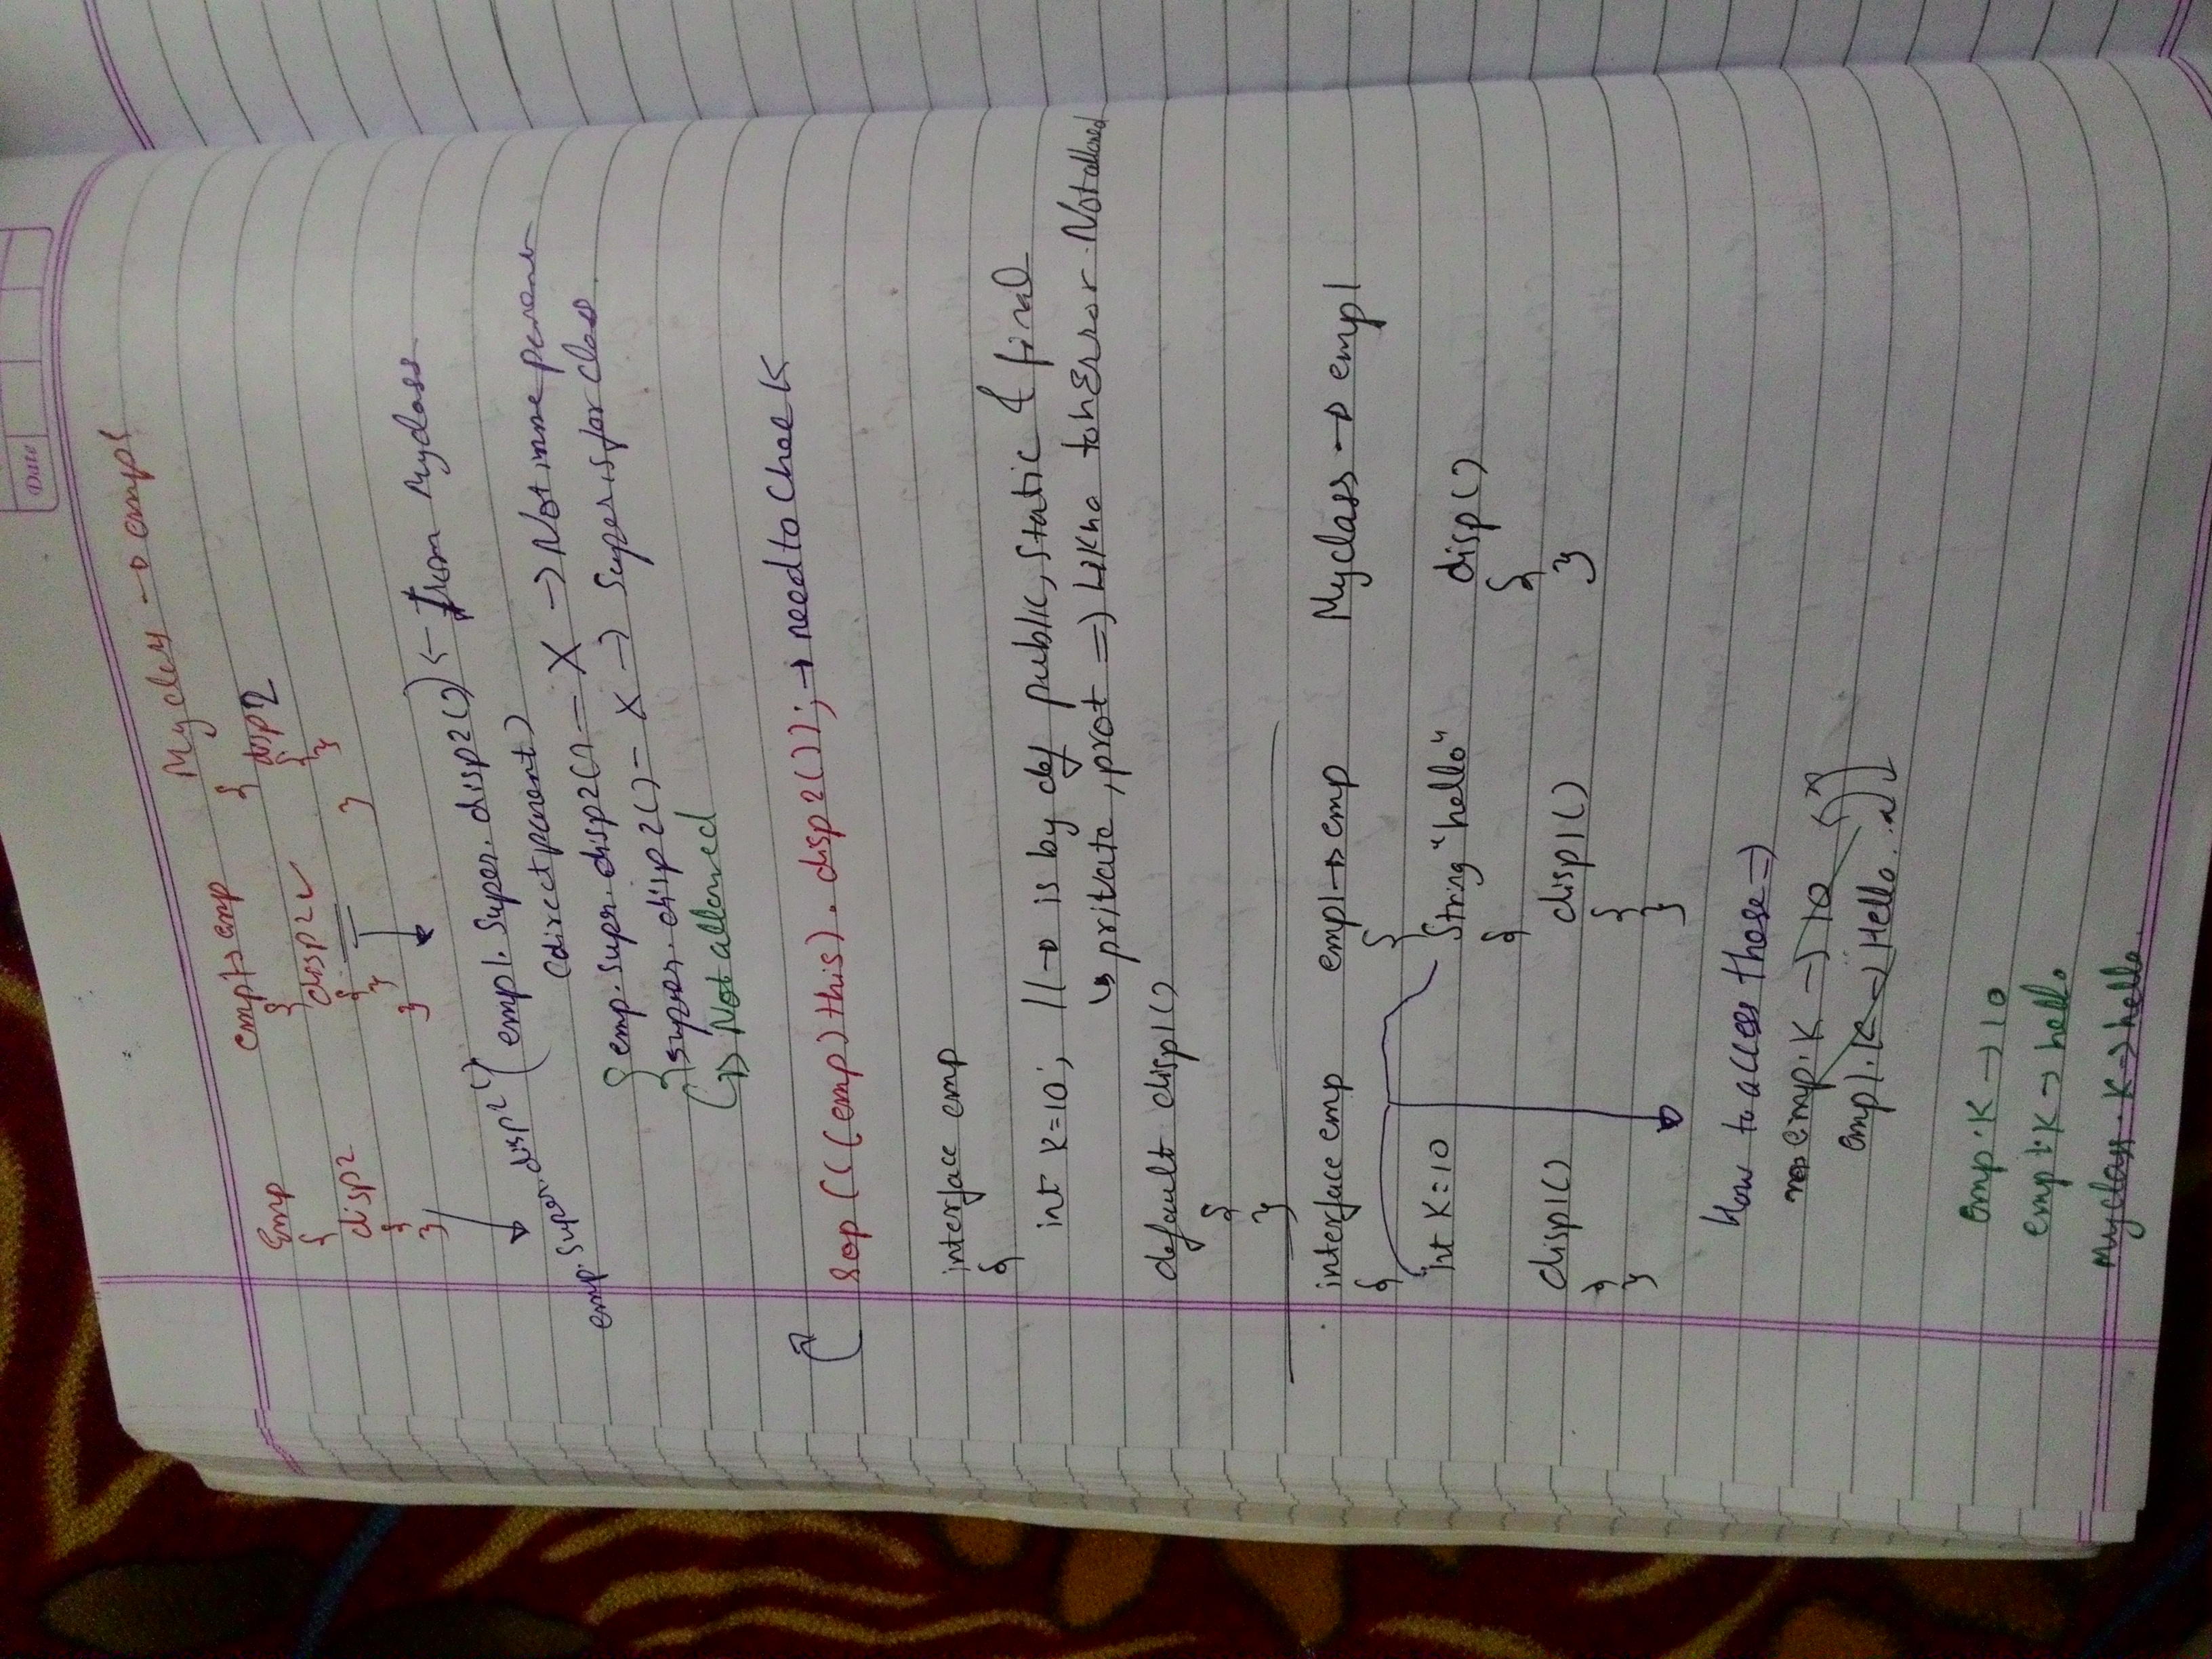 Date
Emp emp1→emp Myclass → emp1
{ { {
disp2 disp2 ✓ disp2
{ { {
} } }
} }
emp.super.disp2() (emp1.super.disp2()) ← from Myclass
(direct parent)
{ emp.supr.disp2() — X → Not imme parent
super.disp2() — X → Super is for class.
↳ Not allowed
Sop(((emp)this).disp2()); → need to Check
interface emp
{
int K=10; //→ is by def public, static & final
↳ private, prot => Likha toh Error. Not allowed
default disp1()
{
}
interface emp emp1→emp Myclass → emp1
{ {
int K=10 String "hello" disp()
{ {
disp1() disp1() }
} {
} }
How to access those =>
emp.K → 10
emp1.K → Hello.
emp.K → 10
emp1.K → hello
Myclass.K → hello.